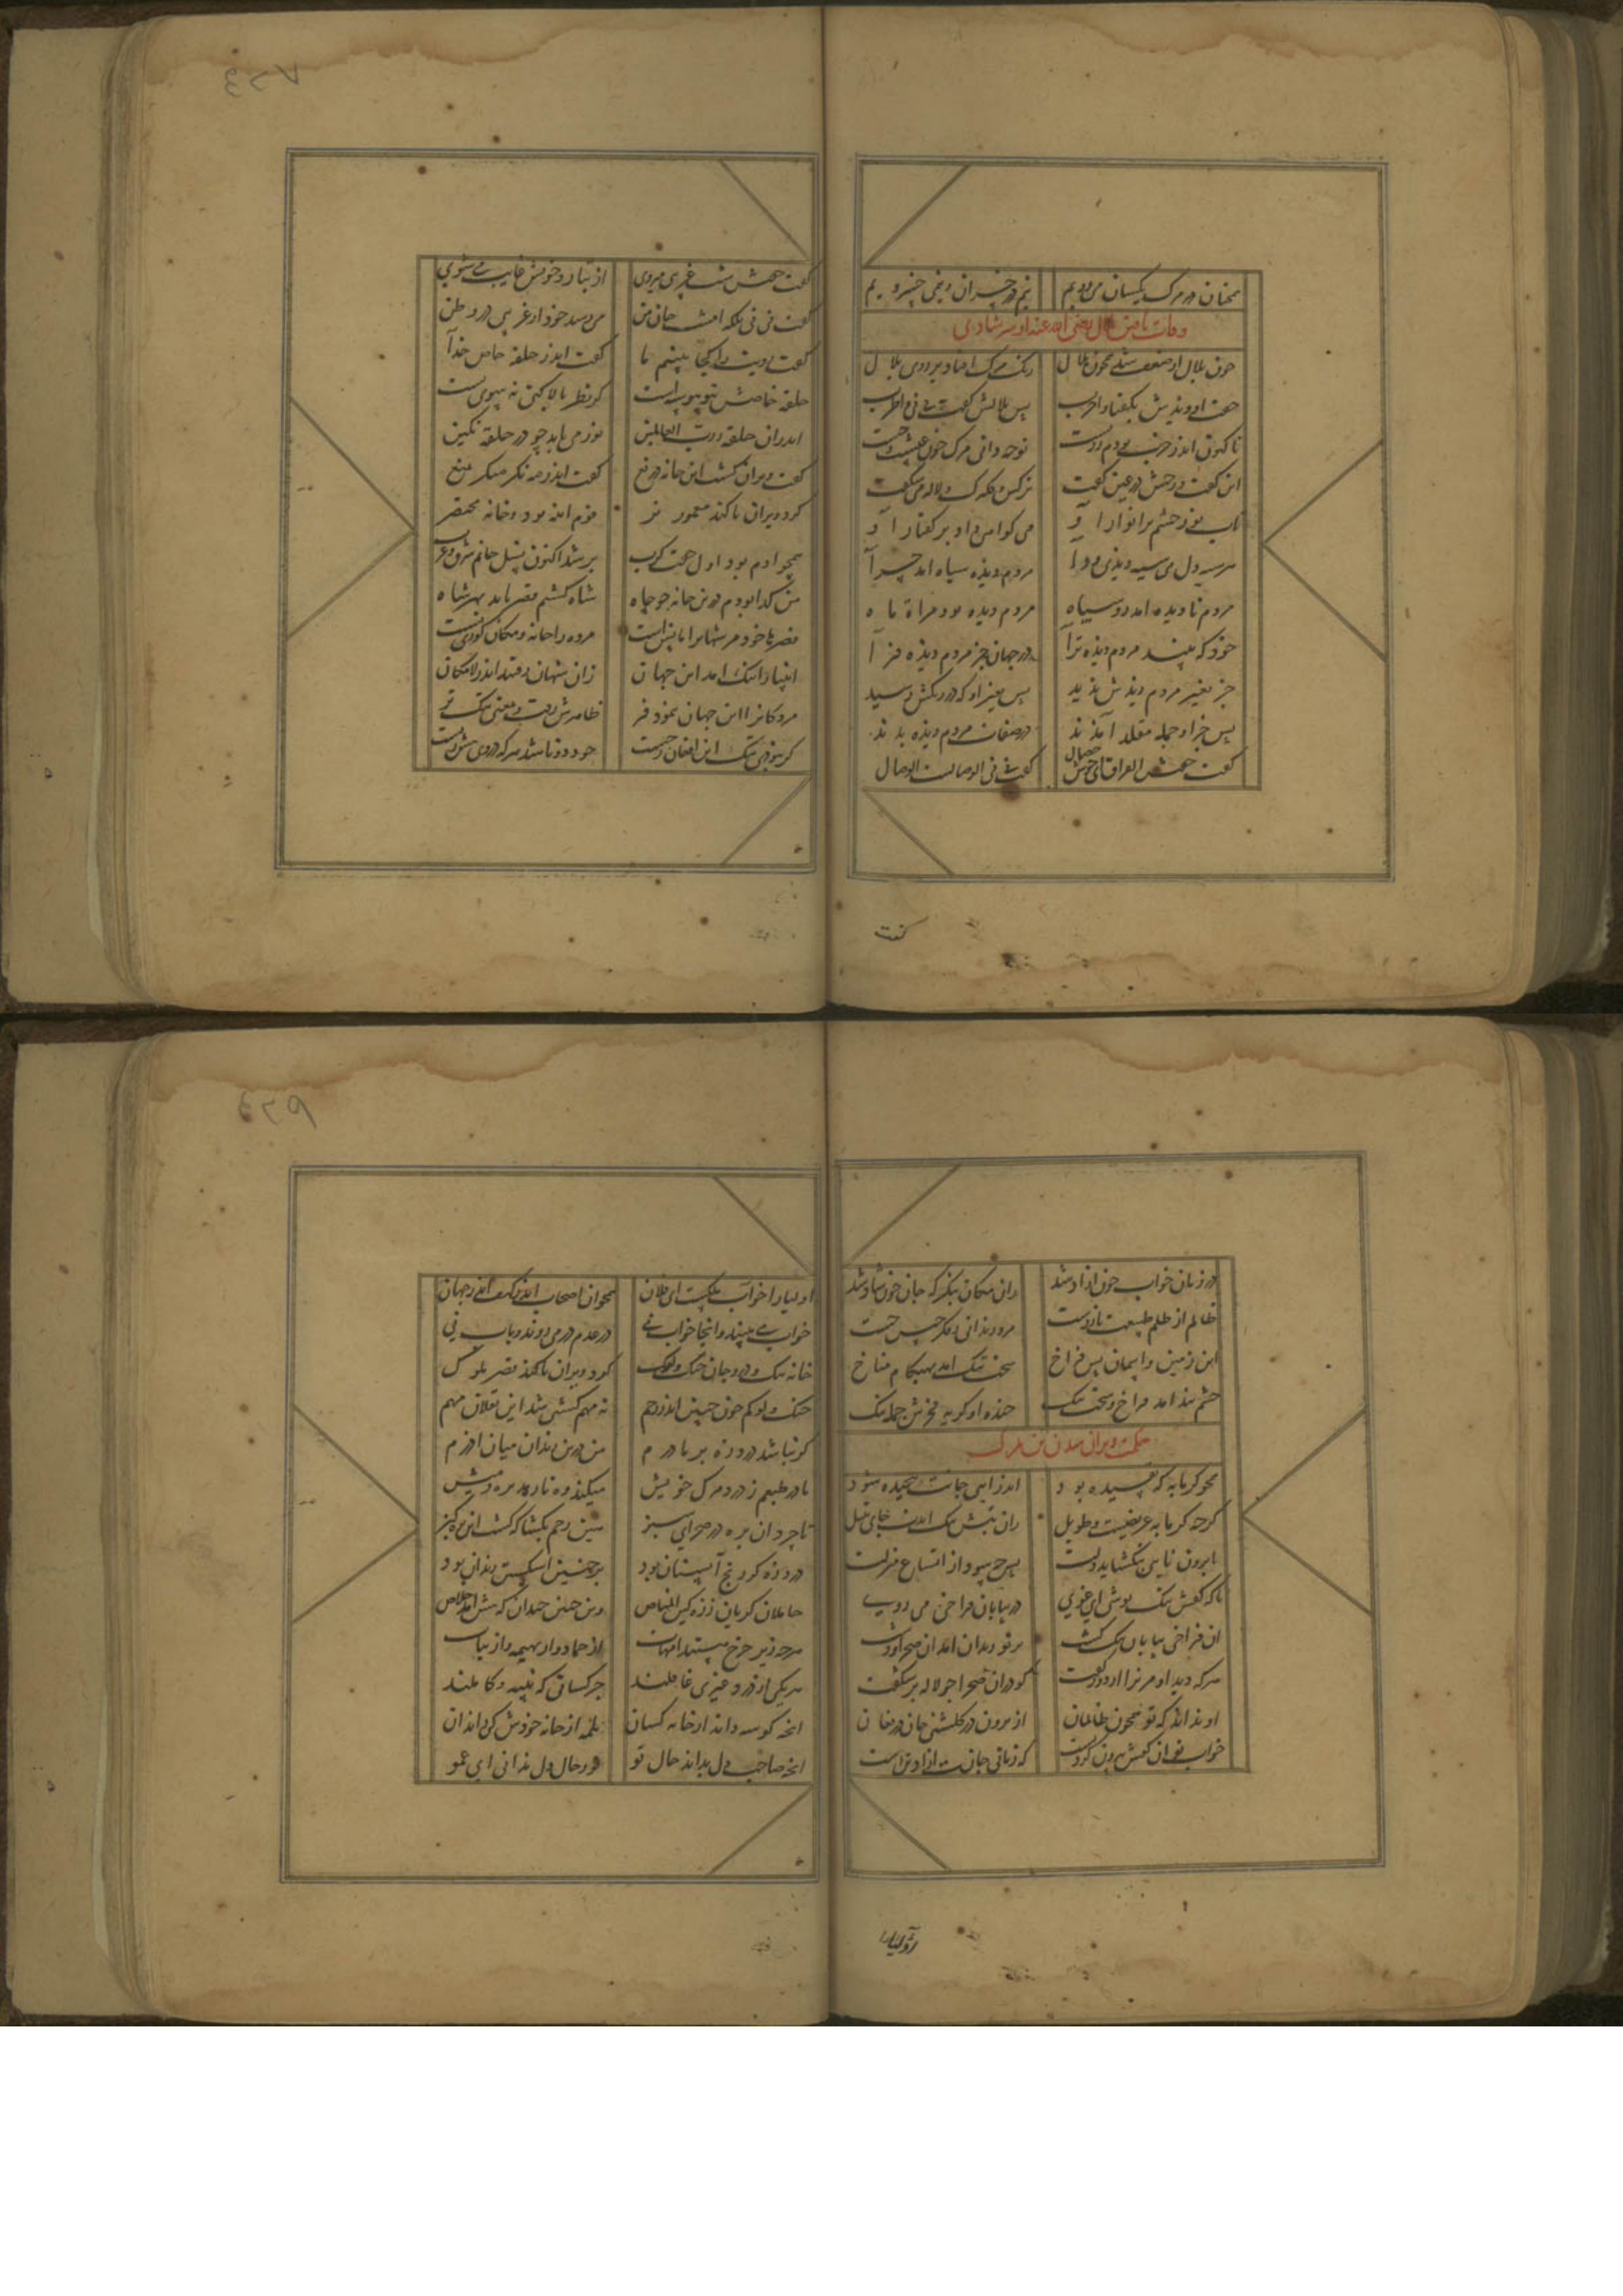 همچنان در مرک یکسان می رویم نیم در خسران و نیمی خسرویم
وفات یافتن بلال رضی الله عنه از سر شادی
چون بلال از ضعف شد همچون هلال رنک مرک افتاد بر روی بلال
جفت او دیدش بکفتا وا حرب پس بلالش کفت نی نی وا طرب
تا کنون اندر حرب بودم ز زیست تو چه دانی مرک چون عیشست و چیست
این کفت و رخش در عین کفت نرکس و کلبرک و لاله می شکفت
تاب رو و چشم پر انوار او می کواهی داد بر کفتار او
هر سیه دل می سیه دیدی ورا مردم دیده سیاه آمد چرا
مردم نادیده آمد رو سیاه مردم دیده بود مرآة ماه
خود که بیند مردم دیده ترا در جهان جز مردم دیده فزا
چون بغیر مردم دیدش ندید پس بغیر او که در رنکش رسید
پس جز او جمله مقلد آمدند در صفات مردم دیده بلند
کفت جفتش الفراق ای خوش خصال کفت نی نی الوصالست الوصال
کفت
کفت جفتش امشب غریبی میروی از تبار و خویش غایب می شوی
کفت نی نی بلکه امشب جان من می رسد خود از غریبی در وطن
کفت رویت را کجا بینیم ما کفت اندر حلقه خاص خدا
حلقه خاصش بتو پیوسته است کر نظر بالا کنی نه سوی پست
اندر آن حلقه ز رب العالمین نور می تابد چو در حلقه نکین
کفت ویران کشت این خانه دریغ کفت اندر مه نکر منکر بمیغ
کرد ویران تا کند معمورتر قومم انبه بود و خانه مختصر
همچو آدم بودم اول حبس کرب پر شد اکنون نسل جانم شرق و غرب
من کدا بودم درین خانه چو چاه شاه کشتم قصر باید بهر شاه
قصرها خود مر شهانرا مانس است مرده را خانه و مکان کوری بسست
انبیا را تنک آمد این جهان زان شهان رفتند اندر لامکان
مردکانرا این جهان بنمود فر ظاهرش زفت و بمعنی تنک تر
کر نبودی تنک این افغان ز چیست چون دو تا شد هر که در وی بیش زیست
در زمان خواب چون آزاد شد زان مکان بنکر که جان چون شاد شد
ظالم از ظلم طبیعت باز رست مرد زندانی ز فکر حبس جست
این زمین و آسمان بس فراخ سخت تنک آمد بهنکام مناخ
چشم بند آمد فراخ و سخت تنک خنده او کریه فخرش جمله ننک
حکمت ویران شدن تن بمرک
همچو کرمابه که تفسیده بود اندر آیی جانت بخسیده شود
کرچه کرمابه عریضست و طویل زان تبش تنک آیدت جان و کلیل
تا برون نایی بنکشاید دلت پس چه سود آمد از اتساع منزلت
یا که کفش تنک پوشی ای غوی در بیابان فراخی می روی
آن فراخی بیابان تنک کشت بر تو زندان آمد آن صحرا و دشت
هر که دید او مر ترا از دور کفت کو در آن صحرا چو لاله بر شکفت
او نداند که تو همچون ظالمان از برون در کلشنی جان در فغان
خواب تو آن کفش بیرون کردنست که زمانی جانت آزاد از تنست
اولیا را
اولیا را خواب ملکست ای فلان همچو آن اصحاب کهف اندر جهان
خواب می بینند و آنجا خواب نی در عدم در می روند و باب نی
خانه تنک و درو جان چنک لوک کرد ویران تا کند قصر ملوک
چنک لوکم چون جنین اندر رحم نه مهم کشتم شد این نقلان مهم
کر نباشد درد زه بر مادرم من درین زندان میان آذرم
مادر طبعم ز درد مرک خویش میکند ره تا رهد بره ز میش
تا چرد آن بره در صحرای سبز هین رحم بکشا که کشت این بره کبز
درد زه کر رنج آبستان بود بر جنین اشکستن زندان بود
حامله کریان ز زه کاین المناص و آن جنین خندان که پیش آمد خلاص
هر چه زیر چرخ هستند امهات از جماد و از بهیمه وز نبات
هر یکی از درد غیری غافلند جز کسانی که نبیه و کاملند
آنچه کوسه داند از خانه کسان بلمه از خانه خودش کی داند آن
آنچه صاحب دل بداند حال تو تو ز حال دل ندانی ای عمو